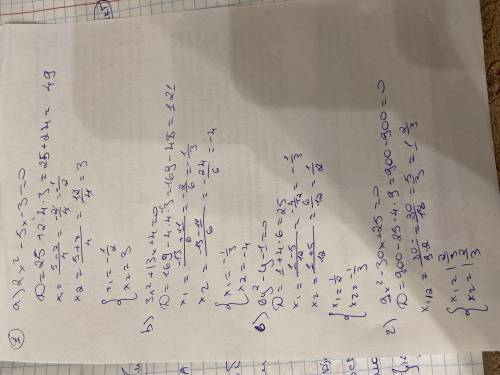 1
а) 2x² - 5x - 3 = 0
D = 25 + 2·4·3 = 25 + 24 = 49
x₁ = (5-7)/4 = -2/4 = -1/2
x₂ = (5+7)/4 = 12/4 = 3
{ x₁ = -1/2
x₂ = 3
b) 3x² + 13x + 4 = 0
D = 169 - 4·4·3 = 169 - 48 = 121
x₁ = (-13+11)/6 = -2/6 = -1/3
x₂ = (-13-11)/6 = -24/6 = -4
{ x₁ = -1/3
x₂ = -4
в) 6y² - y - 1 = 0
D = 1 + 4·6 = 25
x₁ = (1-5)/12 = -4/12 = -1/3
x₂ = (1+5)/12 = 6/12 = 1/2
{ x₁ = 1/2
x₂ = -1/3
г) 9x² - 30x + 25 = 0
D = 900 - 25·4·9 = 900 - 900 = 0
x₁,₂ = 30/9·2 = 30/18 = 5/3 = 1 2/3
{ x₁ = 1 2/3
x₂ = 1 2/3